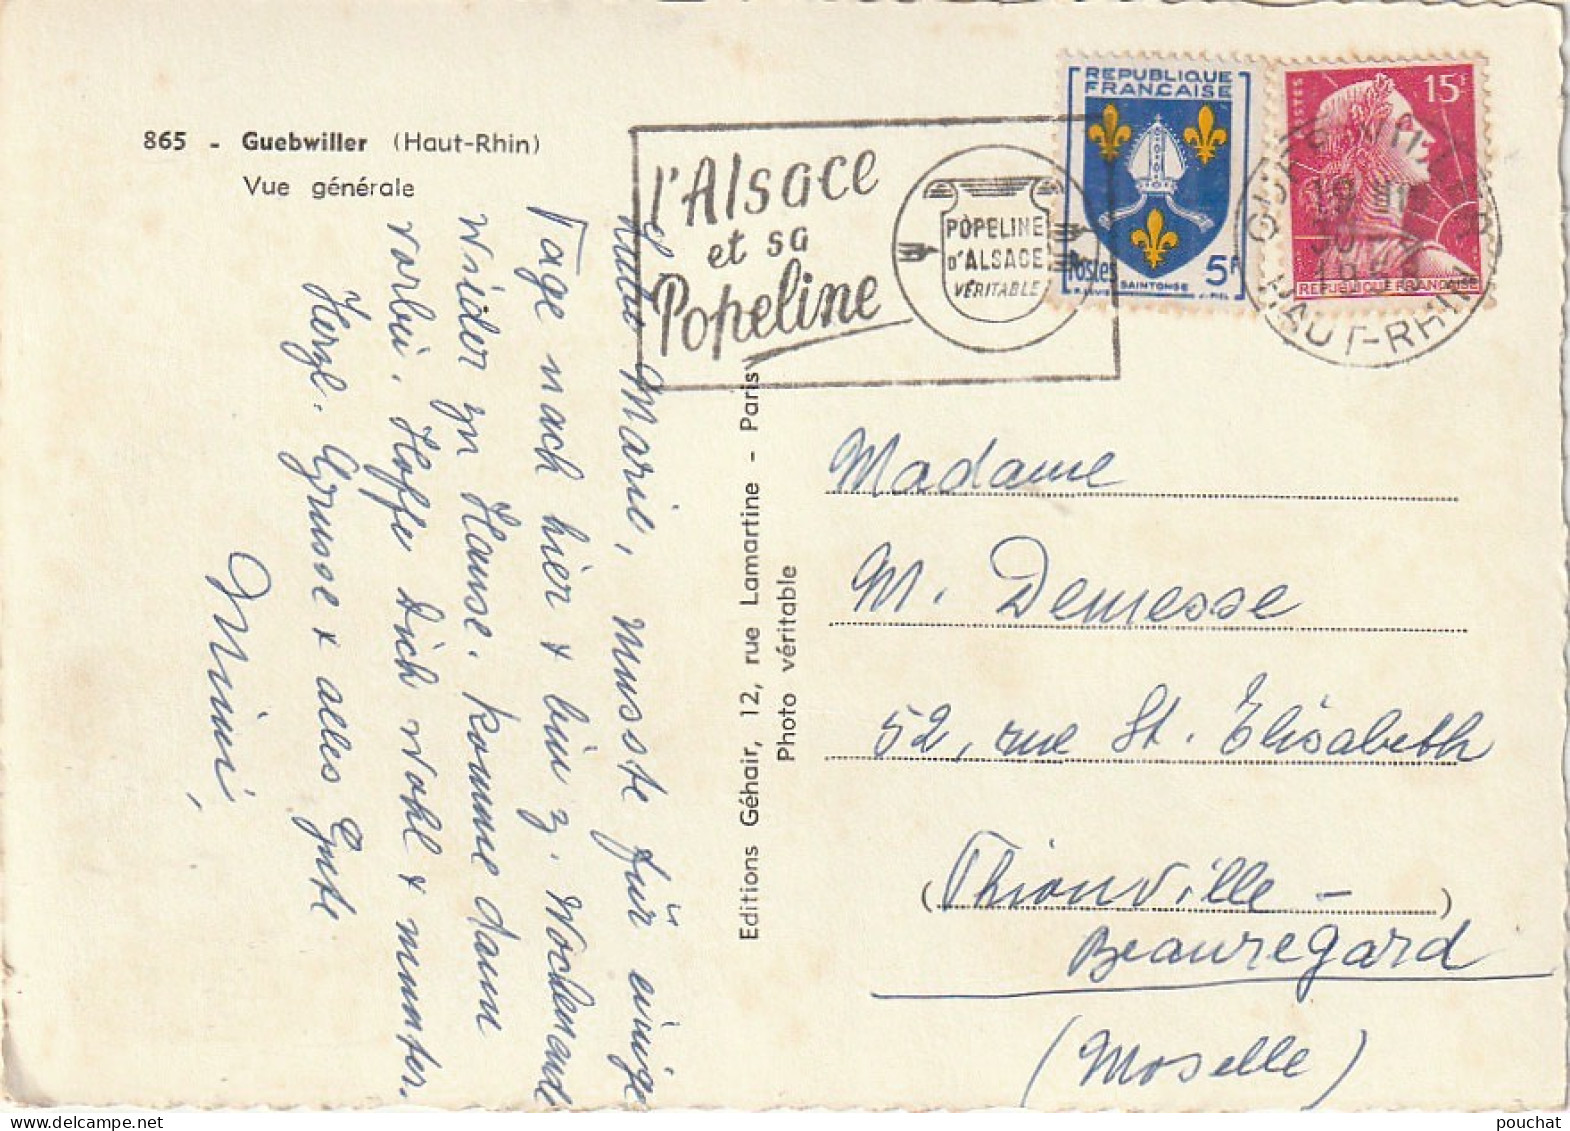 865 - Guebwiller (Haut-Rhin)
Vue générale
l'Alsace
et sa
Popeline
POPELINE
D'ALSACE
VÉRITABLE
REPUBLIQUE
FRANÇAISE
Postes
5F
SAINTONGE
POSTES
15F
REPUBLIQUE FRANÇAISE
HAUT-RHIN
Marie, musste für einige
Tage nach hier + bin z. Wochenende
wieder zu Hause. Komme dann
vorbei. Hoffe Dich wohl + munter.
Herzl. Grüsse + alles Gute
Mimi,
Editions Géhair, 12, rue Lamartine - Paris
Photo véritable
Madame
M. Demesse
52, rue St. Elisabeth
(Thionville -)
Beauregard
(Moselle)
pouchat